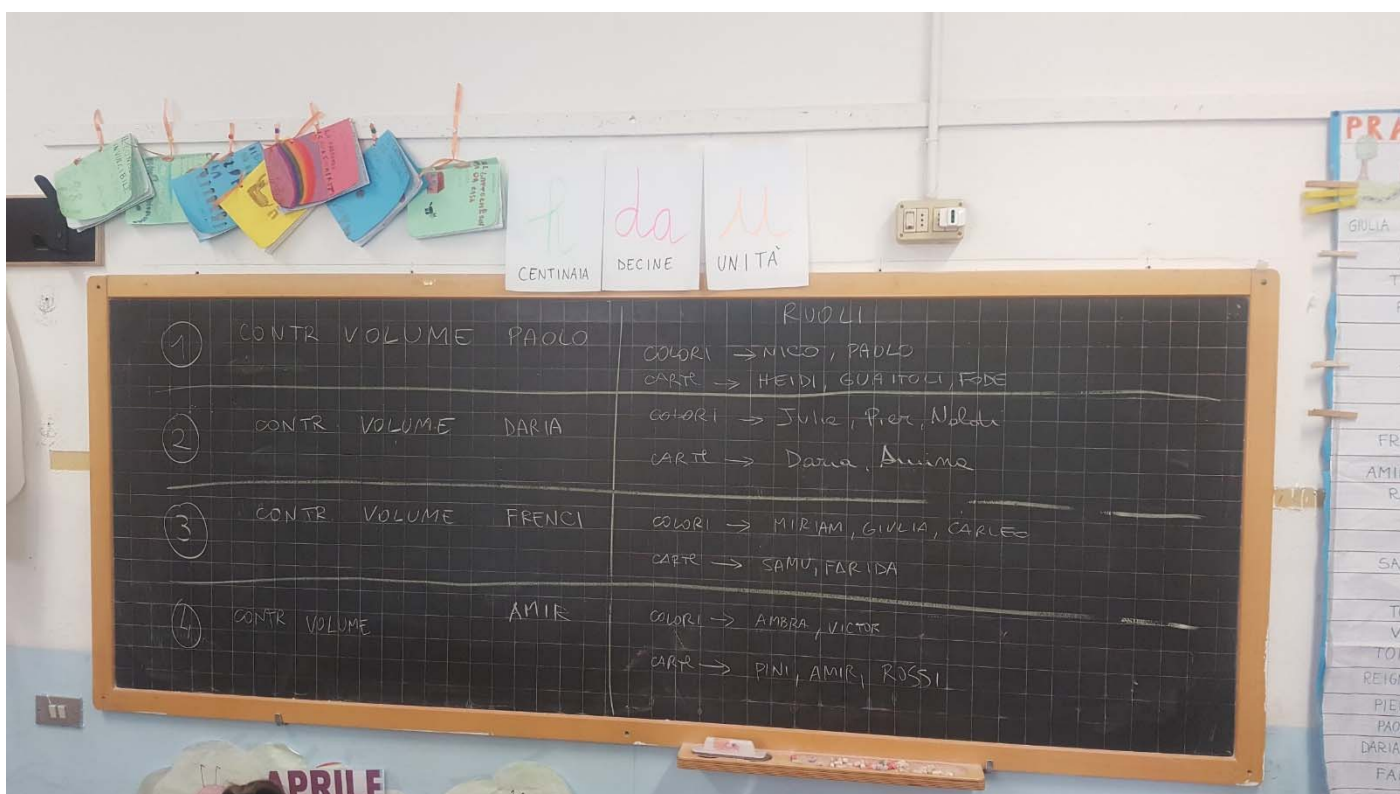 h da u
CENTINAIA
DECINE
UNITÀ
① CONTR VOLUME PAOLO
② CONTR VOLUME DARIA
③ CONTR VOLUME FRENCI
④ CONTR VOLUME AMIR
RUOLI
COLORI → NICO, PAOLO
CARTE → HEIDI, GUAITOLI, FODE
COLORI → Julia, Pier, Noldi
CARTE → Daria, Amina
COLORI → MIRIAM, GIULIA, CARLEO
CARTE → SAMU, FARIDA
COLORI → AMBRA, VICTOR
CARTE → PINI, AMIR, ROSSI
APRILE
PRA
GIULIA
FR
AMI
R
SA
V
PIE
PAO
DARIA